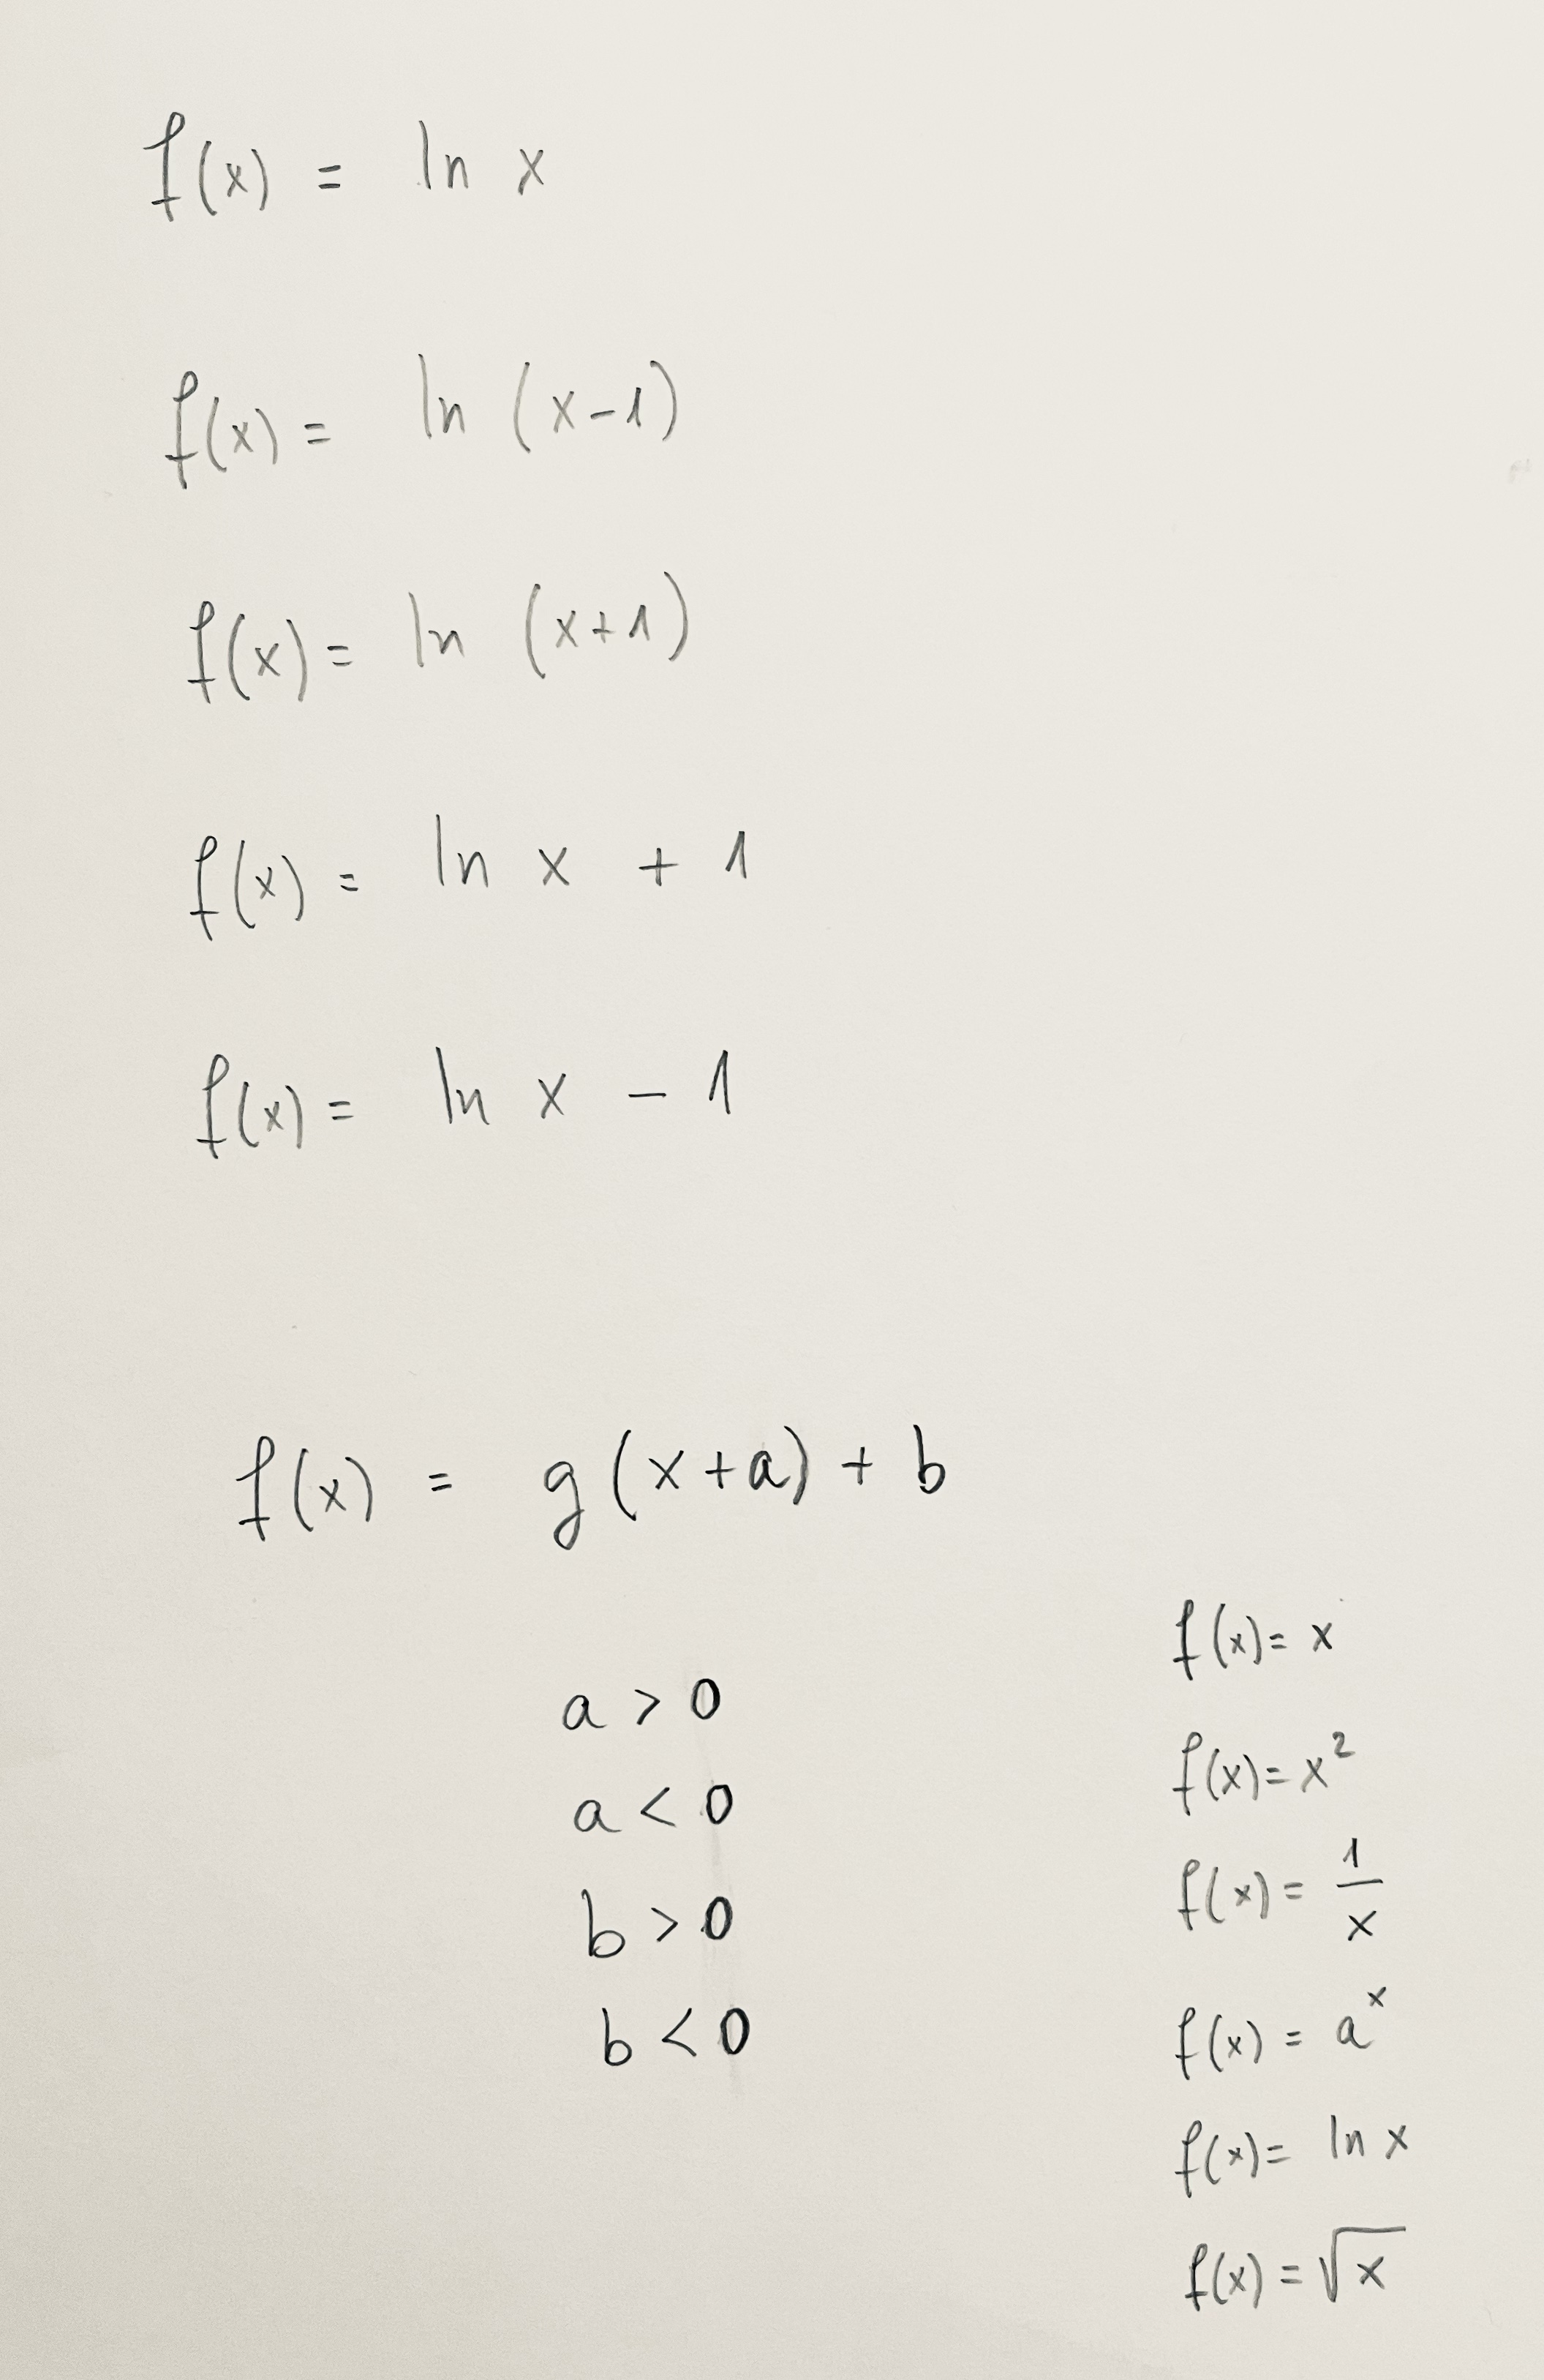 f(x) = ln x
f(x) = ln (x-1)
f(x) = ln (x+1)
f(x) = ln x + 1
f(x) = ln x - 1
f(x) = g(x+a) + b
a > 0
a < 0
b > 0
b < 0
f(x) = x
f(x) = x²
f(x) = 1/x
f(x) = aˣ
f(x) = ln x
f(x) = √x